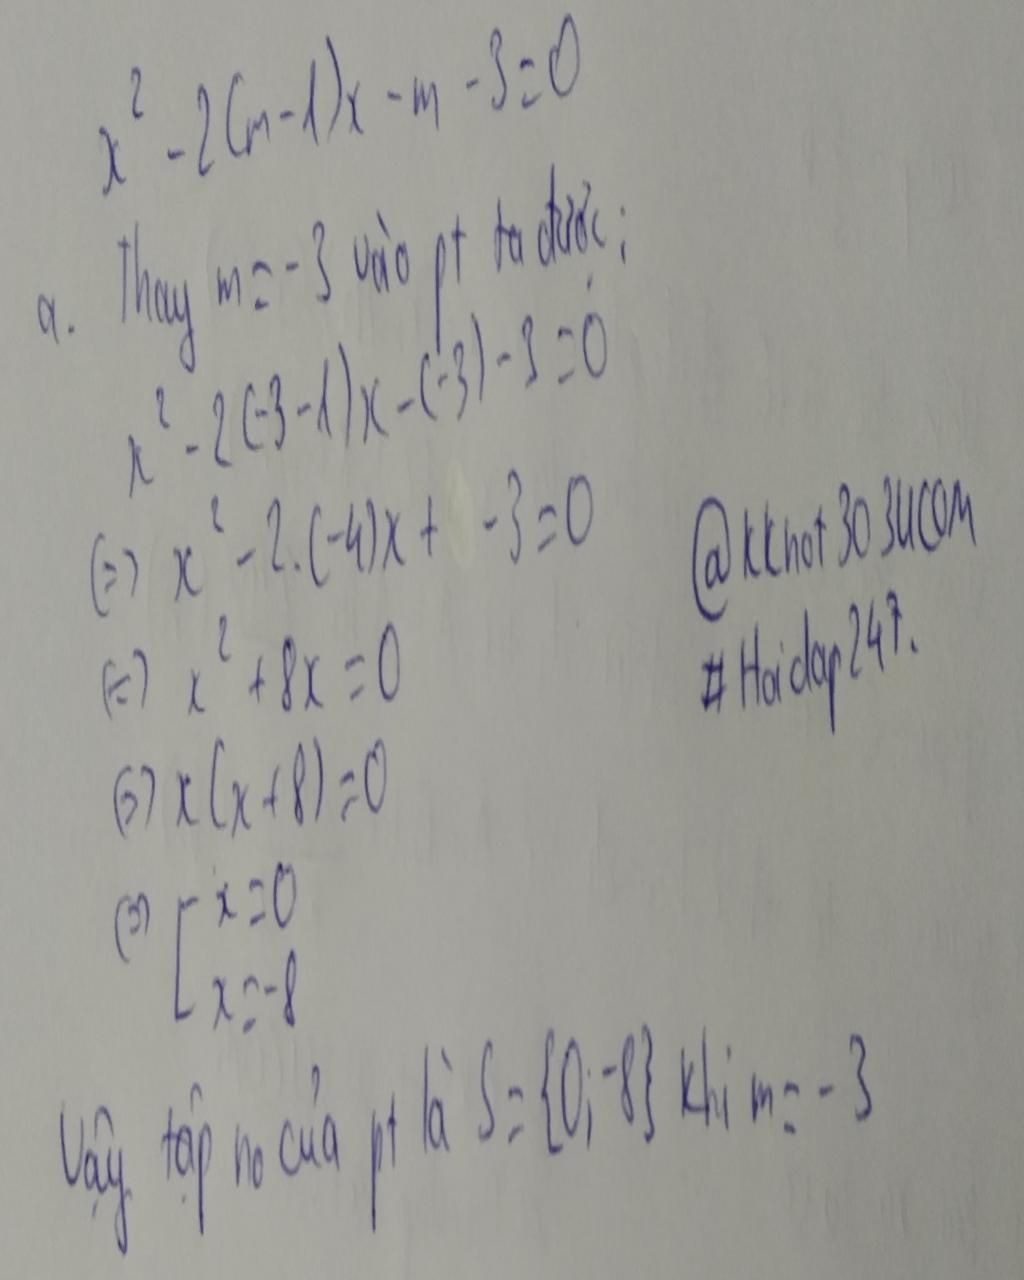 x² - 2(m-1)x - m - 3 = 0
a. Thay m = -3 vào pt ta được:
x² - 2(-3-1)x - (-3) - 3 = 0
(=) x² - 2.(-4)x + - 3 = 0
(=) x² + 8x = 0
(=) x(x+8) = 0
(=) [ x = 0
x = -8
Vậy tập no của pt là S = {0; -8} khi m = -3
#Hoidap247.